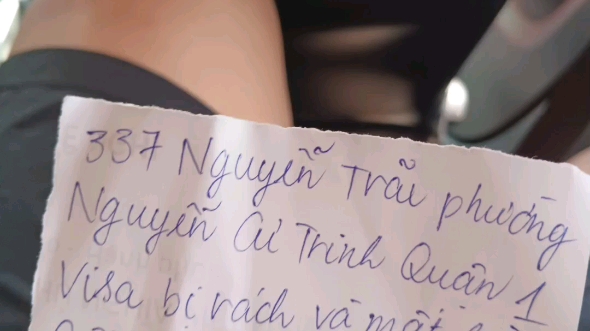 337 Nguyễn Trãi phường
Nguyễn Cư Trinh Quận 1
Visa bị rách và mất